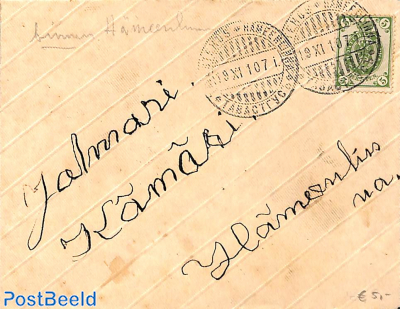 Hämeenlinna
HÄMEENLINNA
19 XI 07 I.
ТАВАСТГУС
19 XI 07 I.
5
Jalmari
Kämäri.
Hämeenlin
na.
€ 5,-
PostBeeld